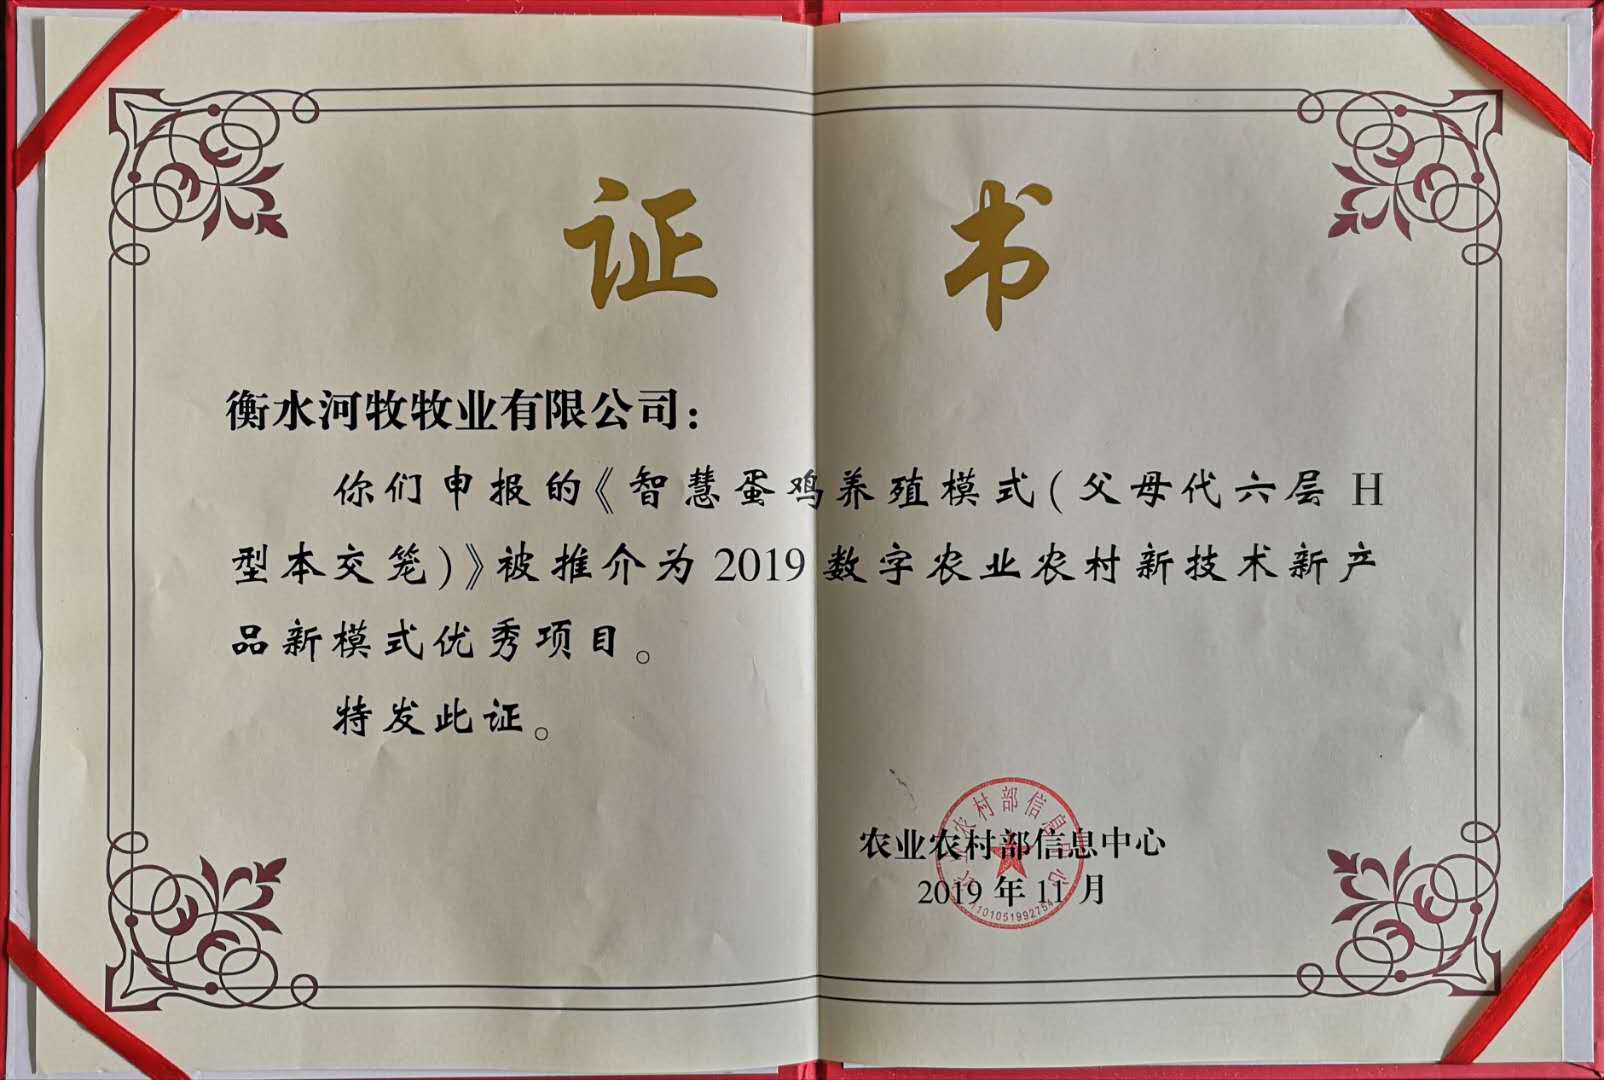 证书
衡水河牧牧业有限公司：
你们申报的《智慧蛋鸡养殖模式(父母代六层H
型本交笼)》被推介为2019数字农业农村新技术新产
品新模式优秀项目。
特发此证。
农业农村部信息中心
2019年11月
农村部信息中心
1101051992754